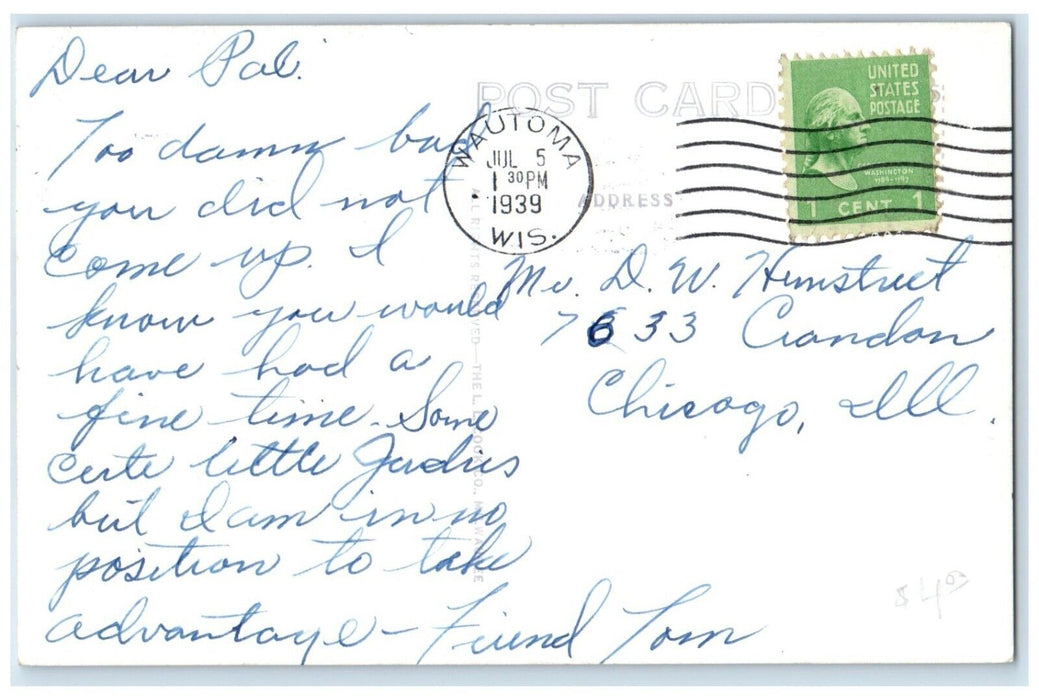 Dear Pal.
Too damn bad
you did not
come up. I
know you would
have had a
fine time. Some
cute little
but I am in no
position to take
advantage - Friend Tom
POST CARD
ADDRESS
WAUTOMA
JUL 5
1 30PM
1939
WIS.
UNITED
STATES
POSTAGE
WASHINGTON
1789-1797
1 CENT 1
Mr. D. W. Hemstreet
7633 Crandon
Chicago, Ill.
$4.00